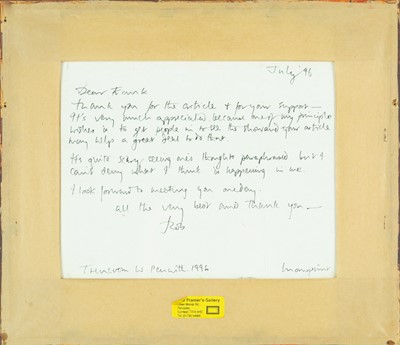 July '96
Dear Frank
Thank you for the article & for your support —
It's very much appreciated because one of my principle
wishes is to get people in to see the
helps a great deal to do that.
It's quite scary seeing ones thoughts paraphrased but I
can't deny what I think is happening in me
I look forward to meeting you one day.
all the very best and thank you —
Rob
Trencrom W. Penwith 1996
Framer's Gallery